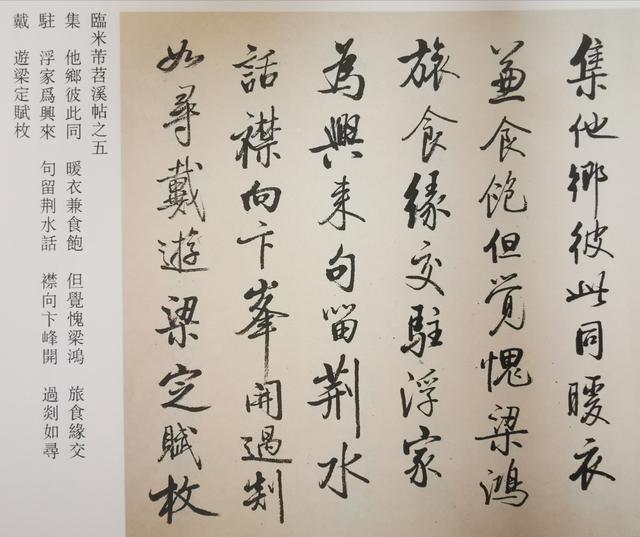 集他鄉彼此同暖衣
兼食飽但覺愧梁鴻
旅食緣交駐浮家
為興来句留荆水
話襟向卞峯開過剡
如尋戴遊梁定賦枚
臨米芾苕溪帖之五
集 他鄉彼此同 暖衣兼食飽 但覺愧梁鴻 旅食緣交
駐 浮家爲興來 句留荆水話 襟向卞峰開 過剡如尋
戴 遊梁定賦枚